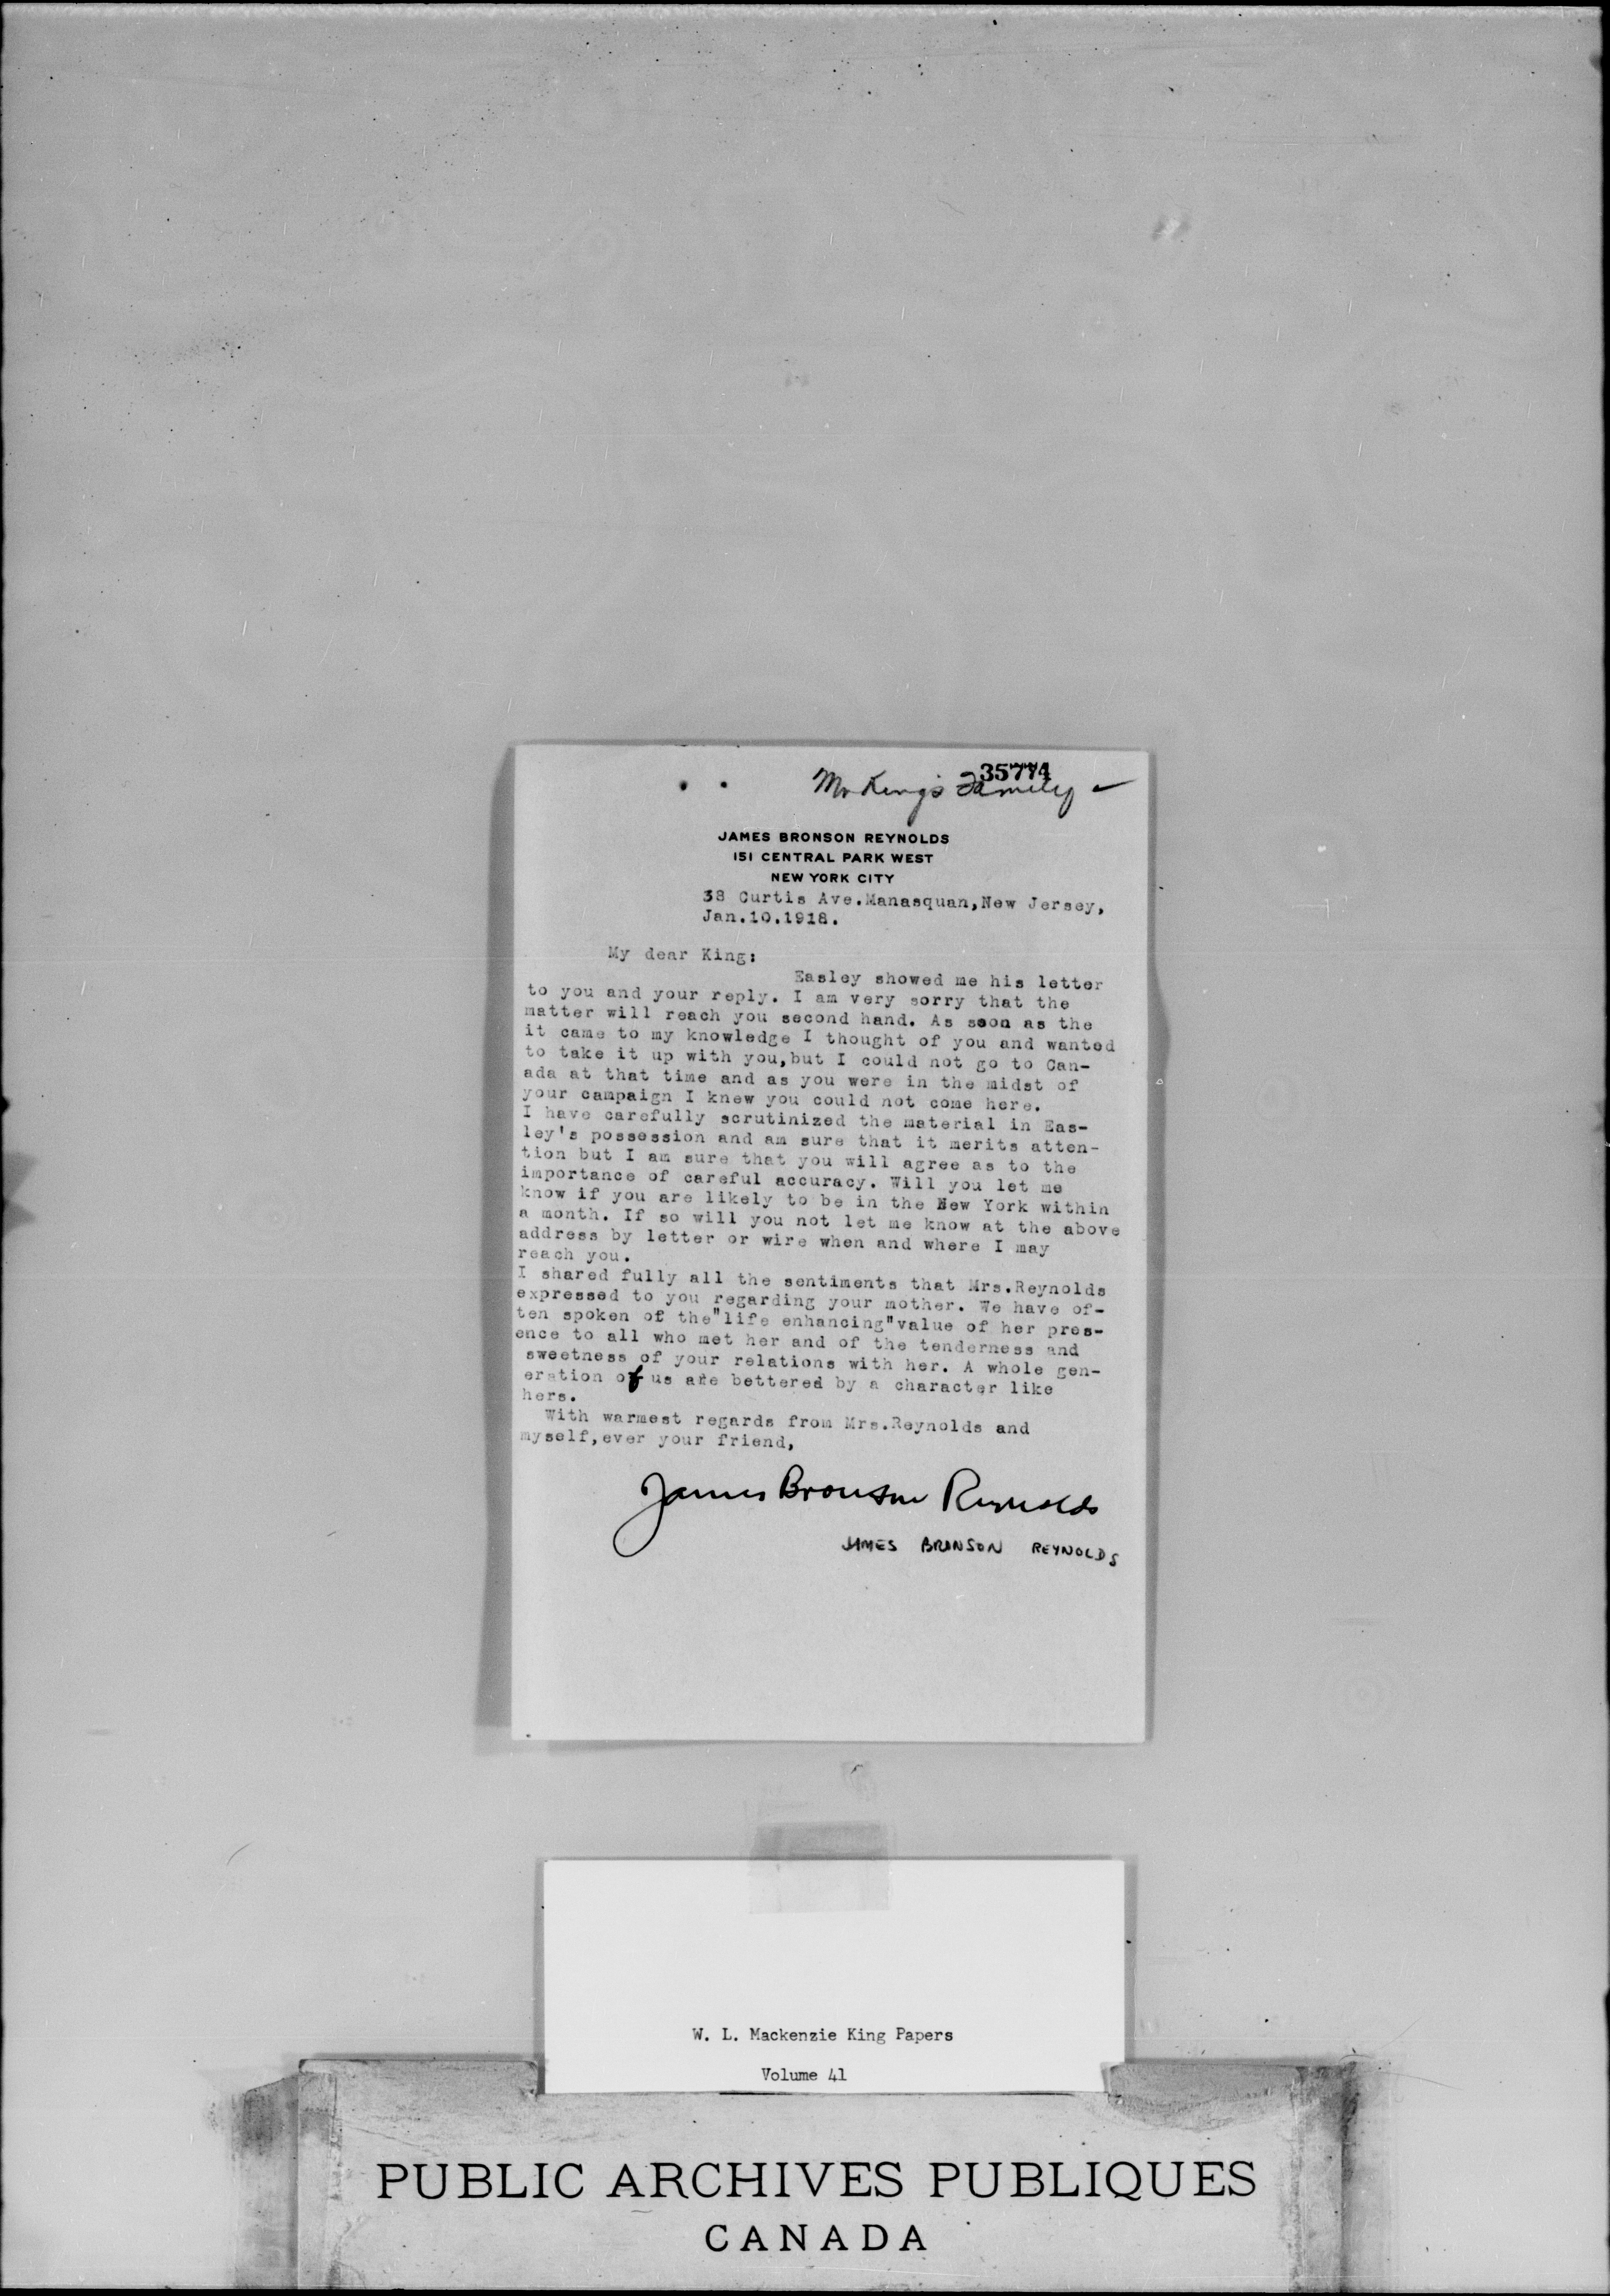 35774
Mr King's Family
JAMES BRONSON REYNOLDS
151 CENTRAL PARK WEST
NEW YORK CITY
38 Curtis Ave.Manasquan,New Jersey,
Jan.10.1918.
My dear King:
Easley showed me his letter
to you and your reply. I am very sorry that the
matter will reach you second hand. As soon as the
it came to my knowledge I thought of you and wanted
to take it up with you,but I could not go to Can-
ada at that time and as you were in the midst of
your campaign I knew you could not come here.
I have carefully scrutinized the material in Eas-
ley's possession and am sure that it merits atten-
tion but I am sure that you will agree as to the
importance of careful accuracy. Will you let me
know if you are likely to be in the New York within
a month. If so will you not let me know at the above
address by letter or wire when and where I may
reach you.
I shared fully all the sentiments that Mrs.Reynolds
expressed to you regarding your mother. We have of-
ten spoken of the"life enhancing"value of her pres-
ence to all who met her and of the tenderness and
sweetness of your relations with her. A whole gen-
eration of us are bettered by a character like
hers.
With warmest regards from Mrs.Reynolds and
myself,ever your friend,
James Bronson Reynolds
JAMES BRONSON REYNOLDS
W. L. Mackenzie King Papers
Volume 41
PUBLIC ARCHIVES PUBLIQUES
CANADA